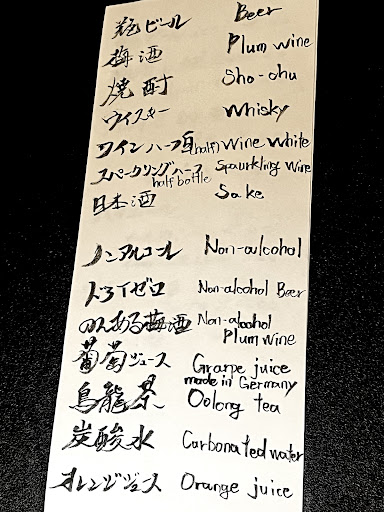 瓶ビール Beer
梅酒 Plum wine
焼酎 Sho-chu
ウイスキー Whisky
ワインハーフ白(half) Wine White
スパークリングハーフ Spaurkling Wine
half bottle
日本酒 Sake
ノンアルコール Non-aulcohol
ドライゼロ Non-alcohol Beer
のんある梅酒 Non-alcohol
Plum wine
葡萄ジュース Grarpe juice
made in Germany
烏龍茶 Oolong tea
炭酸水 Carbonated water
オレンジジュース Orange juice